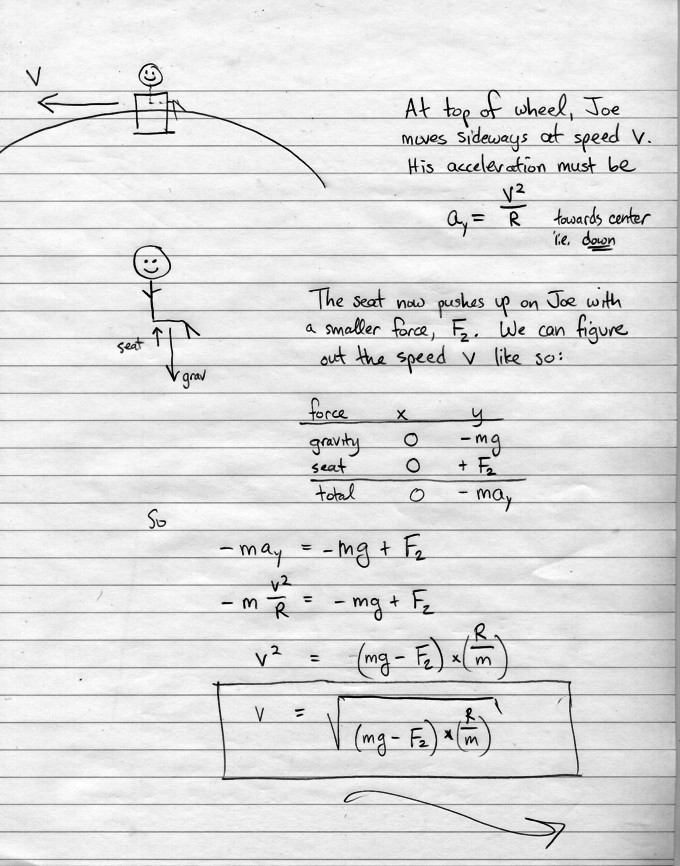 V
At top of wheel, Joe
moves sideways at speed v.
His acceleration must be
a_y = v²/R towards center
i.e. down
The seat now pushes up on Joe with
a smaller force, F₂. We can figure
out the speed v like so:
seat
grav
force x y
gravity 0 -mg
seat 0 + F₂
total 0 - ma_y
So
-ma_y = -mg + F₂
-m v²/R = -mg + F₂
v² = (mg - F₂) × (R/m)
v = √(mg - F₂) × (R/m)